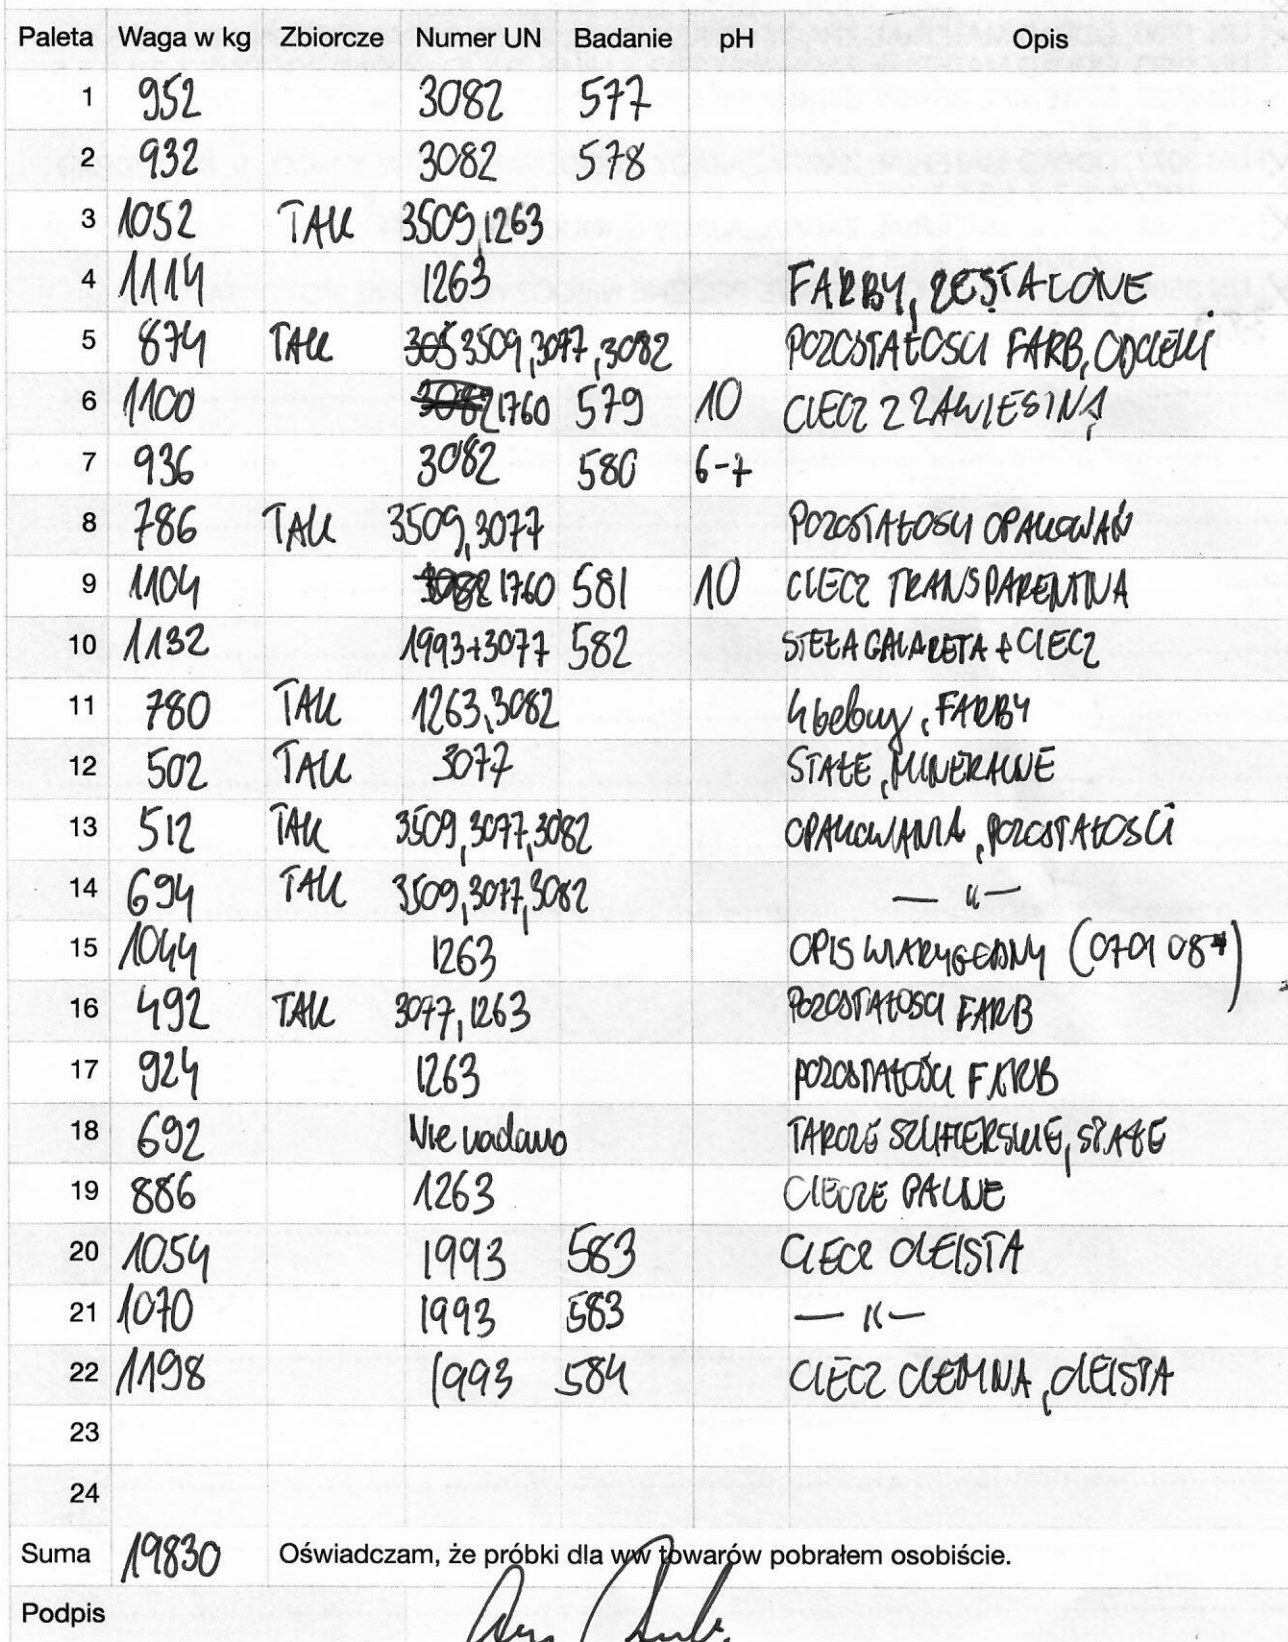 Paleta Waga w kg Zbiorcze Numer UN Badanie pH Opis
1 952 3082 577
2 932 3082 578
3 1052 TAK 3509,1263
4 1114 1263 FARBY, ZESTALONE
5 874 TAK 3509,3077,3082 POZOSTAŁOŚCI FARB, ODCIEKI
6 1100 1760 579 10 CIECZ Z ZAWIESINĄ
7 936 3082 580 6-7
8 786 TAK 3509,3077 POZOSTAŁOŚCI OPAKOWAŃ
9 1104 1760 581 10 CIECZ TRANSPARENTNA
10 1132 1993+3077 582 STEŁA GALARETA + CIECZ
11 780 TAK 1263,3082 4 bebny, FARBY
12 502 TAK 3077 STAŁE, MINERALNE
13 512 TAK 3509,3077,3082 OPAKOWANIA, POZOSTAŁOŚCI
14 694 TAK 3509,3077,3082 — 〃 —
15 1044 1263 OPIS WIARYGODNY (070108*)
16 492 TAK 3077,1263 POZOSTAŁOŚCI FARB
17 924 1263 POZOSTAŁOŚCI FARB
18 692 Nie nadano TARCZE SZLIFIERSKIE, STAŁE
19 886 1263 CIECZE PALNE
20 1054 1993 583 CIECZ OLEISTA
21 1070 1993 583 — 〃 —
22 1198 1993 584 CIECZ CIEMNA, OLEISTA
23
24
Suma 19830 Oświadczam, że próbki dla ww towarów pobrałem osobiście.
Podpis